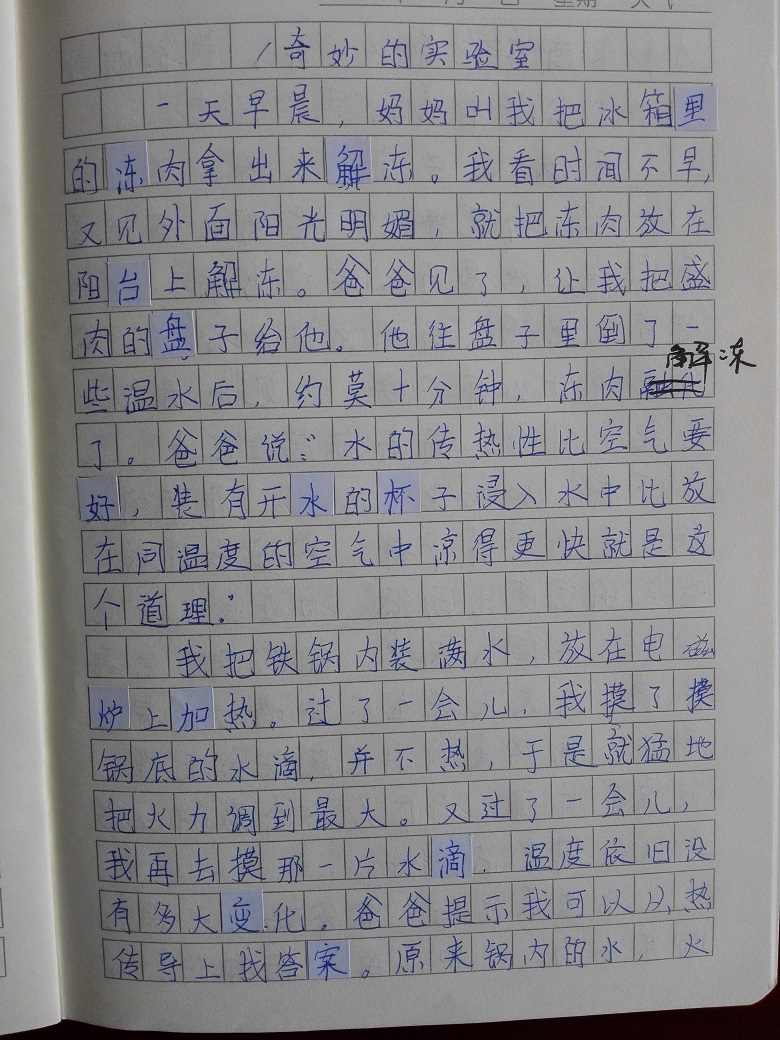 奇妙的实验室
一天早晨，妈妈叫我把冰箱里
的冻肉拿出来解冻。我看时间不早，
又见外面阳光明媚，就把冻肉放在
阳台上解冻。爸爸见了，让我把盛
肉的盘子给他。他往盘子里倒了一
些温水后，约莫十分钟，冻肉解冻
了。爸爸说：“水的传热性比空气要
好，装有开水的杯子浸入水中比放
在同温度的空气中凉得更快就是这
个道理。”
我把铁锅内装满水，放在电磁
炉上加热。过了一会儿，我摸了摸
锅底的水滴，并不热，于是就猛地
把火力调到最大。又过了一会儿，
我再去摸那一片水滴，温度依旧没
有多大变化。爸爸提示我可以从热
传导上找答案。原来锅内的水，火